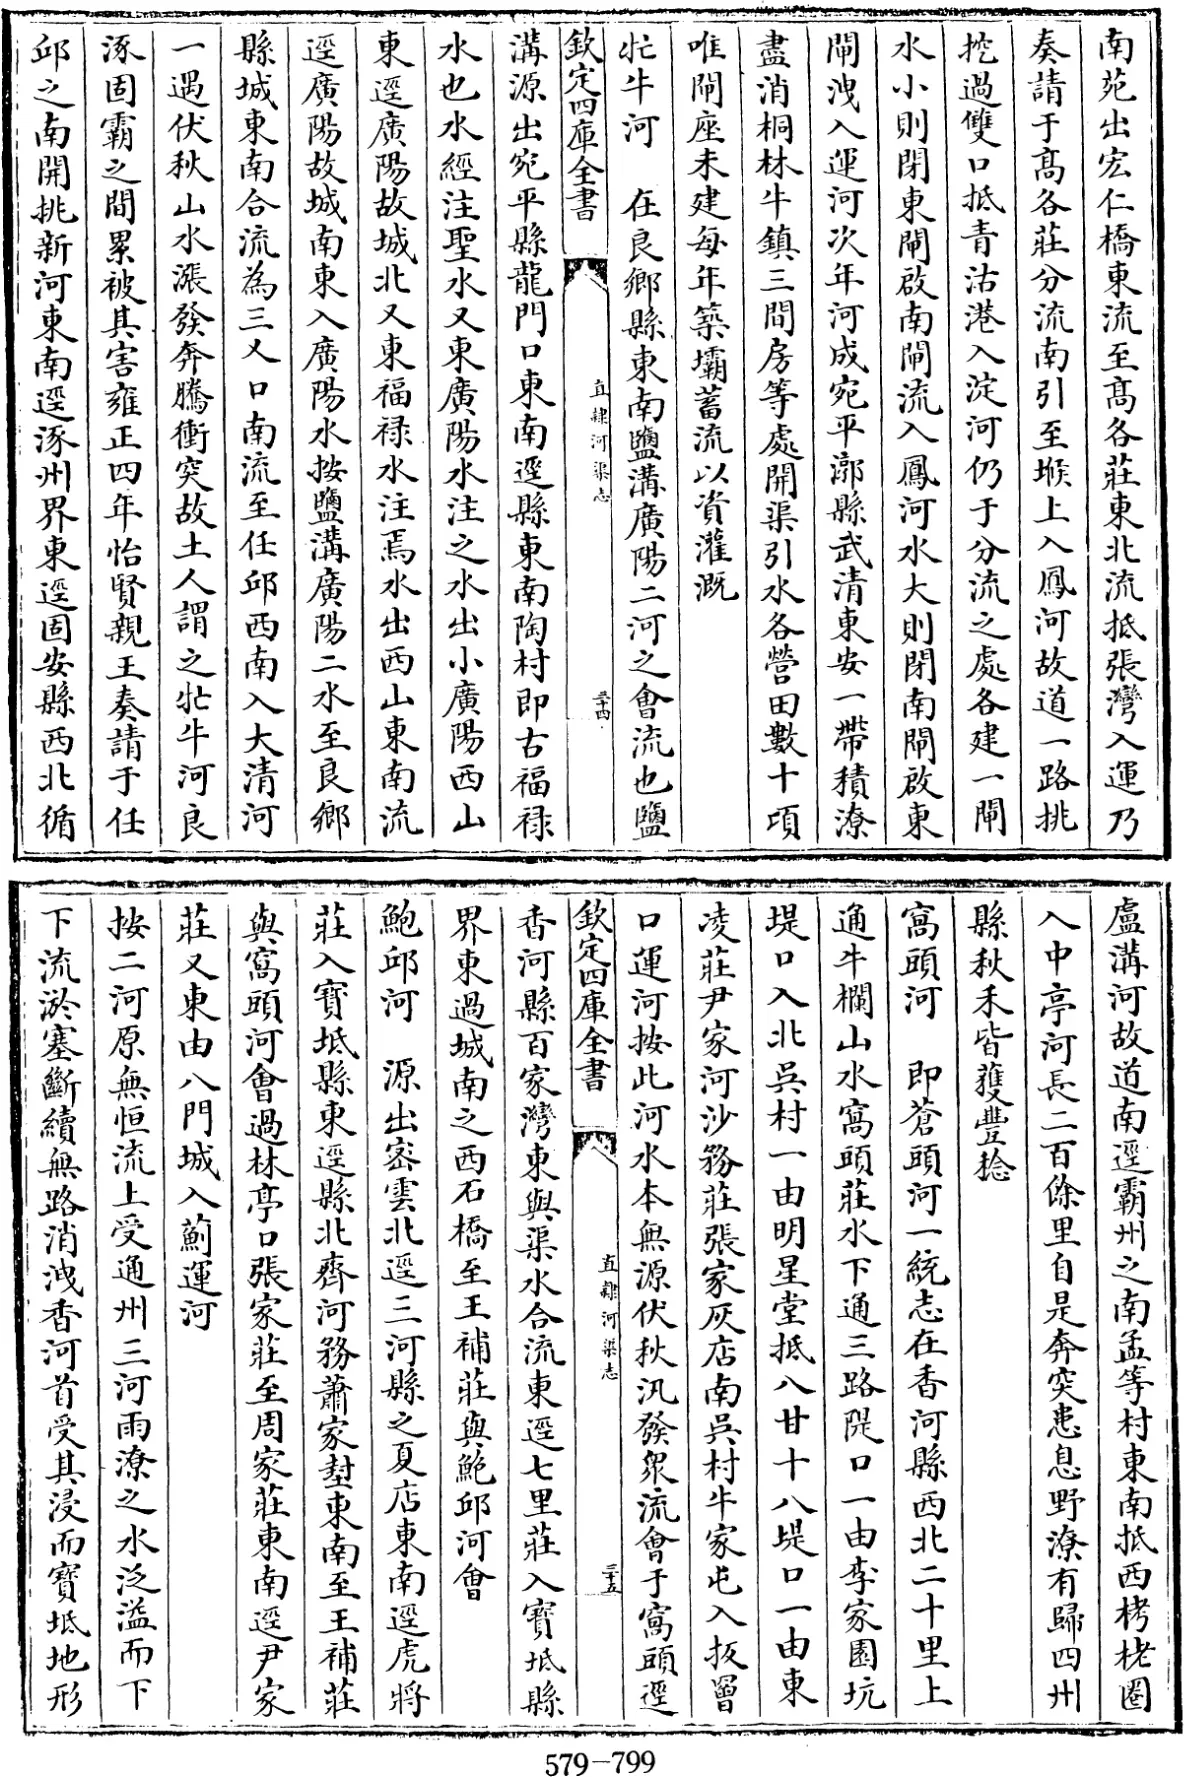 南苑出宏仁橋東流至髙各莊東北流抵張灣入運乃
奏請于髙各莊分流南引至堠上入鳳河故道一路挑
挖過雙口抵青沽港入淀河仍于分流之處各建一閘
水小則閉東閘啟南閘流入鳳河水大則閉南閘啟東
閘洩入運河次年河成宛平漷縣武清東安一帶積潦
盡消桐林牛鎮三間房等處開渠引水各營田數十頃
唯閘座未建每年築壩蓄流以資灌溉
牤牛河　在良鄉縣東南鹽溝廣陽二河之會流也鹽
欽定四庫全書
直隸河渠志
三十四
溝源出宛平縣龍門口東南逕縣東南陶村即古福禄
水也水經注聖水又東廣陽水注之水出小廣陽西山
東逕廣陽故城北又東福禄水注焉水出西山東南流
逕廣陽故城南東入廣陽水按鹽溝廣陽二水至良鄉
縣城東南合流為三乂口南流至任邱西南入大清河
一遇伏秋山水漲發奔騰衝突故土人謂之牤牛河良
涿固霸之間累被其害雍正四年怡賢親王奏請于任
邱之南開挑新河東南逕涿州界東逕固安縣西北循
盧溝河故道南逕霸州之南孟等村東南抵西栲栳圈
入中亭河長二百餘里自是奔突患息野潦有歸四州
縣秋禾皆獲豐稔
窩頭河　即蒼頭河一統志在香河縣西北二十里上
通牛欄山水窩頭莊水下通三路隄口一由李家園坑
堤口入北吳村一由明星堂抵八甘十八堤口一由東
凌莊尹家河沙務莊張家灰店南吳村牛家屯入扳罾
口運河按此河水本無源伏秋汛發衆流會于窩頭逕
欽定四庫全書
直隸河渠志
三十五
香河縣百家灣東與渠水合流東逕七里莊入寶坻縣
界東過城南之西石橋至王補莊與鮑邱河會
鮑邱河　源出密雲北逕三河縣之夏店東南逕虎將
莊入寶坻縣東逕縣北齊河務蕭家莊東南至王補莊
與窩頭河會過林亭口張家莊至周家莊東南逕尹家
莊又東由八門城入薊運河
按二河原無恒流上受通州三河雨潦之水泛溢而下
下流淤塞斷續無路消洩香河首受其浸而寶坻地形
579-799